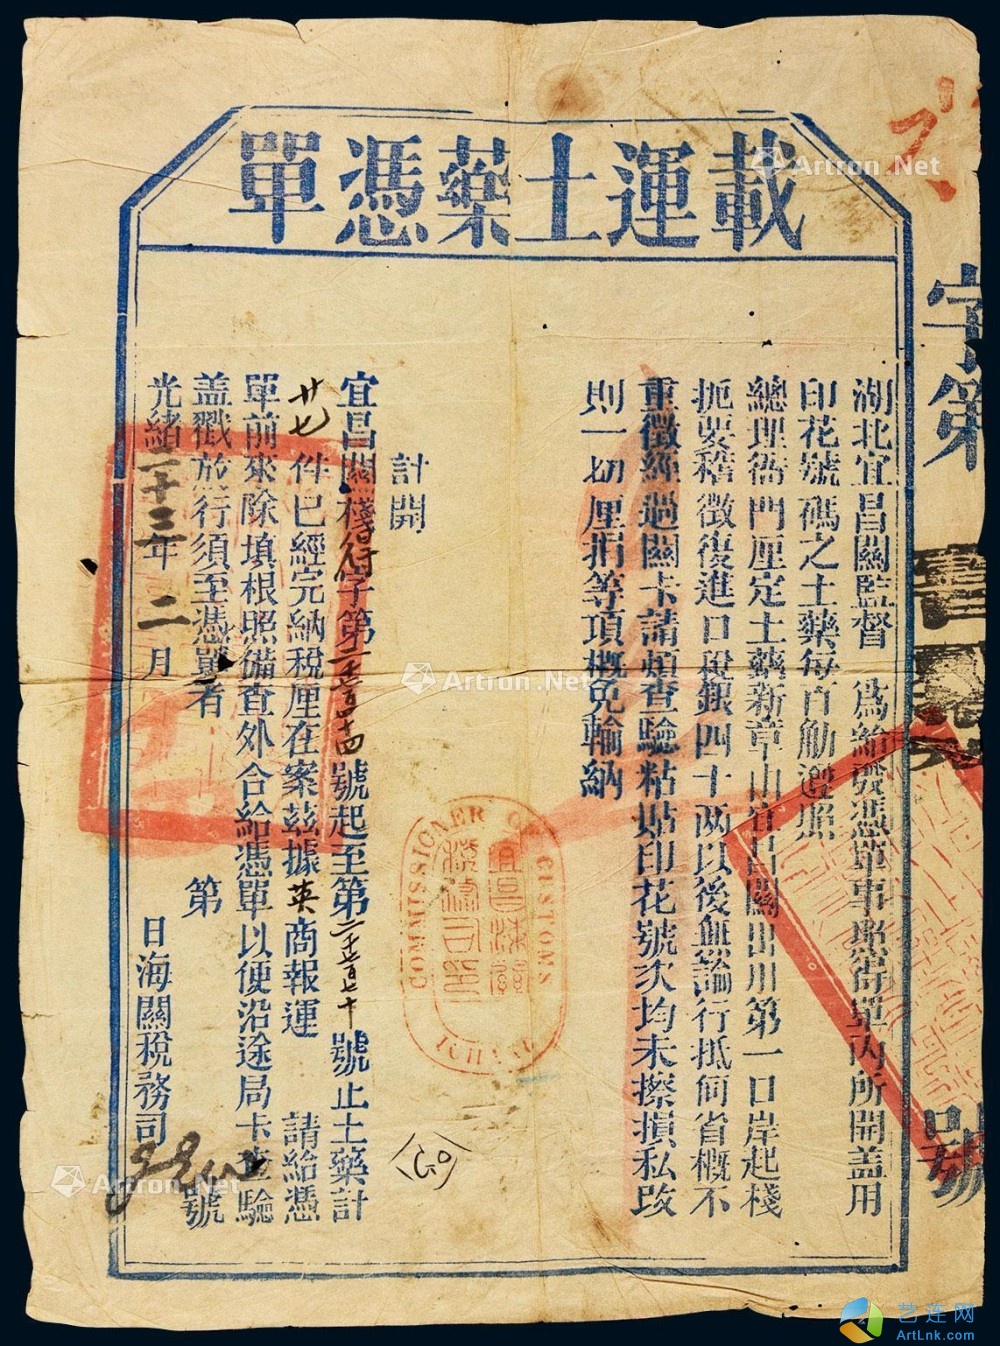 載運土藥憑單
湖北宜昌關監督 為給發憑單事照得單內所開蓋用
印花號碼之土藥每百觔遵照
總理衙門厘定土藥新章由宜昌關出川第一口岸起棧
扼要稽徵復進口稅銀四十两以後無論行抵何省概不
重徵經過關卡請煩查驗粘貼印花號次均未擦損私改
則一切厘捐等項概免輸納
計開
宜昌關棧行字第 號起至第 號止土藥計
廿七件已經完納稅厘在案茲據英商報運 請給憑
單前來除填根照備查外合給憑單以便沿途局卡查驗
蓋戳放行須至憑單者 第 號
光緒二十三年 二 月 日海關稅務司
字第 號
COMMISSIONER OF CUSTOMS
ICHANG
GO
Artron.Net
Artron.Net
Artron.Net
Artron.Net
艺连网
ArtLnk.com